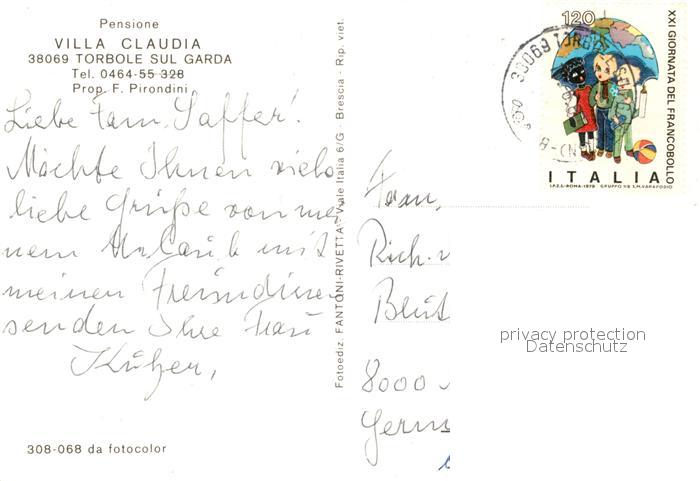 Pensione
VILLA CLAUDIA
38069 TORBOLE SUL GARDA
Tel. 0464-55 328
Prop. F. Pirondini
Liebe Fam. Saffer!
Möchte Ihnen viele
liebe Grüße von mei
nem Urlaub mit
meinen Freundinen
senden Ihre Frau
308-068 da fotocolor
Fotoediz. FANTONI-RIVETTA - Viale Italia 6/G - Brescia - Rip. viet.
38069 TORBOLE
120
XXI GIORNATA DEL FRANCOBOLLO
ITALIA
I.P.Z.S.-ROMA-1979
Fam.
Rich.
Blüt
8000
Germ
privacy protection
Datenschutz